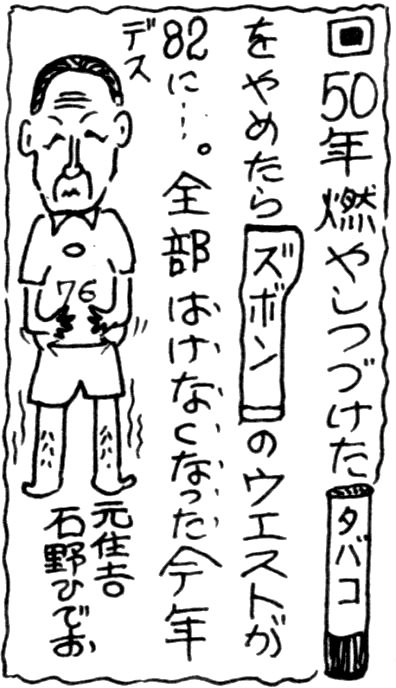 回50年燃やしつづけたタバコ
をやめたらズボンのウエストが
82に…。全部はけなくなった今年
デス
76
元住吉
石野ひでお